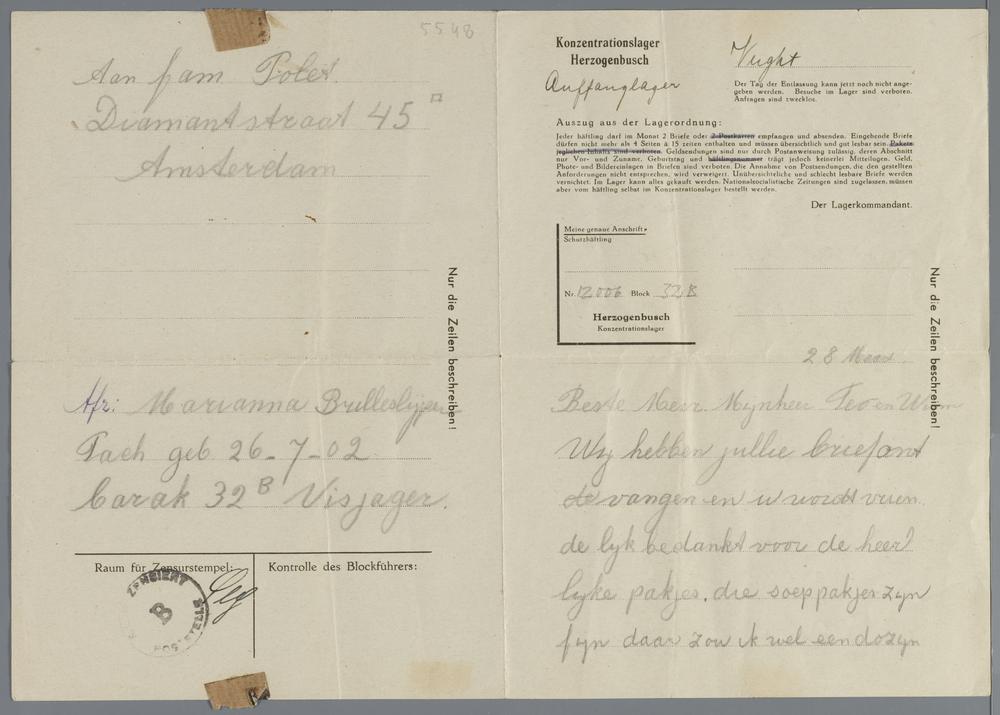 5548
Aan fam Polet.
Diamantstraat 45
Amsterdam
Nur die Zeilen beschreiben!
Afz: Marianna Brilleslijper
geb. 26-7-02
barak 32 B Visjager.
Raum für Zensurstempel:
Kontrolle des Blockführers:
ZENSIERT
B
POSTSTELLE
Konzentrationslager
Herzogenbusch
Auffanglager
Vught
Der Tag der Entlassung kann jetzt noch nicht ange-
geben werden. Besuche im Lager sind verboten.
Anfragen sind zwecklos.
Auszug aus der Lagerordnung:
Jeder häftling darf im Monat 2 Briefe oder 2 Postkarten empfangen und absenden. Eingehende Briefe
dürfen nicht mehr als 4 Seiten à 15 zeilen enthalten und müssen übersichtlich und gut lesbar sein. Pakete
jeglichen Inhalts sind verboten. Geldsendungen sind nur durch Postanweisung zulässig, deren Abschnitt
nur Vor- und Zuname, Geburtstag und häftlingsnummer trägt jedoch keinerlei Mitteilogen. Geld,
Photo- und Bildereinlagen in Briefen sind verboten. Die Annahme von Postsendungen, die den gestellten
Anforderungen nicht entsprechen, wird verweigert. Unübersichtliche und schlecht lesbare Briefe werden
vernichtet. Im Lager kann alles gekauft werden. Nationalsocialistische Zeitungen sind zugelassen, müssen
aber vom häftling selbst im Konzentrationslager bestellt werden.
Der Lagerkommandant.
Meine genaue Anschrift:
Schutzhäftling
Nr. 12006 Block 32B
Herzogenbusch
Konzentrationslager
Nur die Zeilen beschreiben!
28 Maart.
Beste Mevr. Mynheer Teo en Wim
Wy hebben jullie brief ont
de vangen en u wordt vrien
de lyk bedankt voor de heer
lyke pakjes. die soeppakjes zyn
fyn daar zou ik wel een dozyn